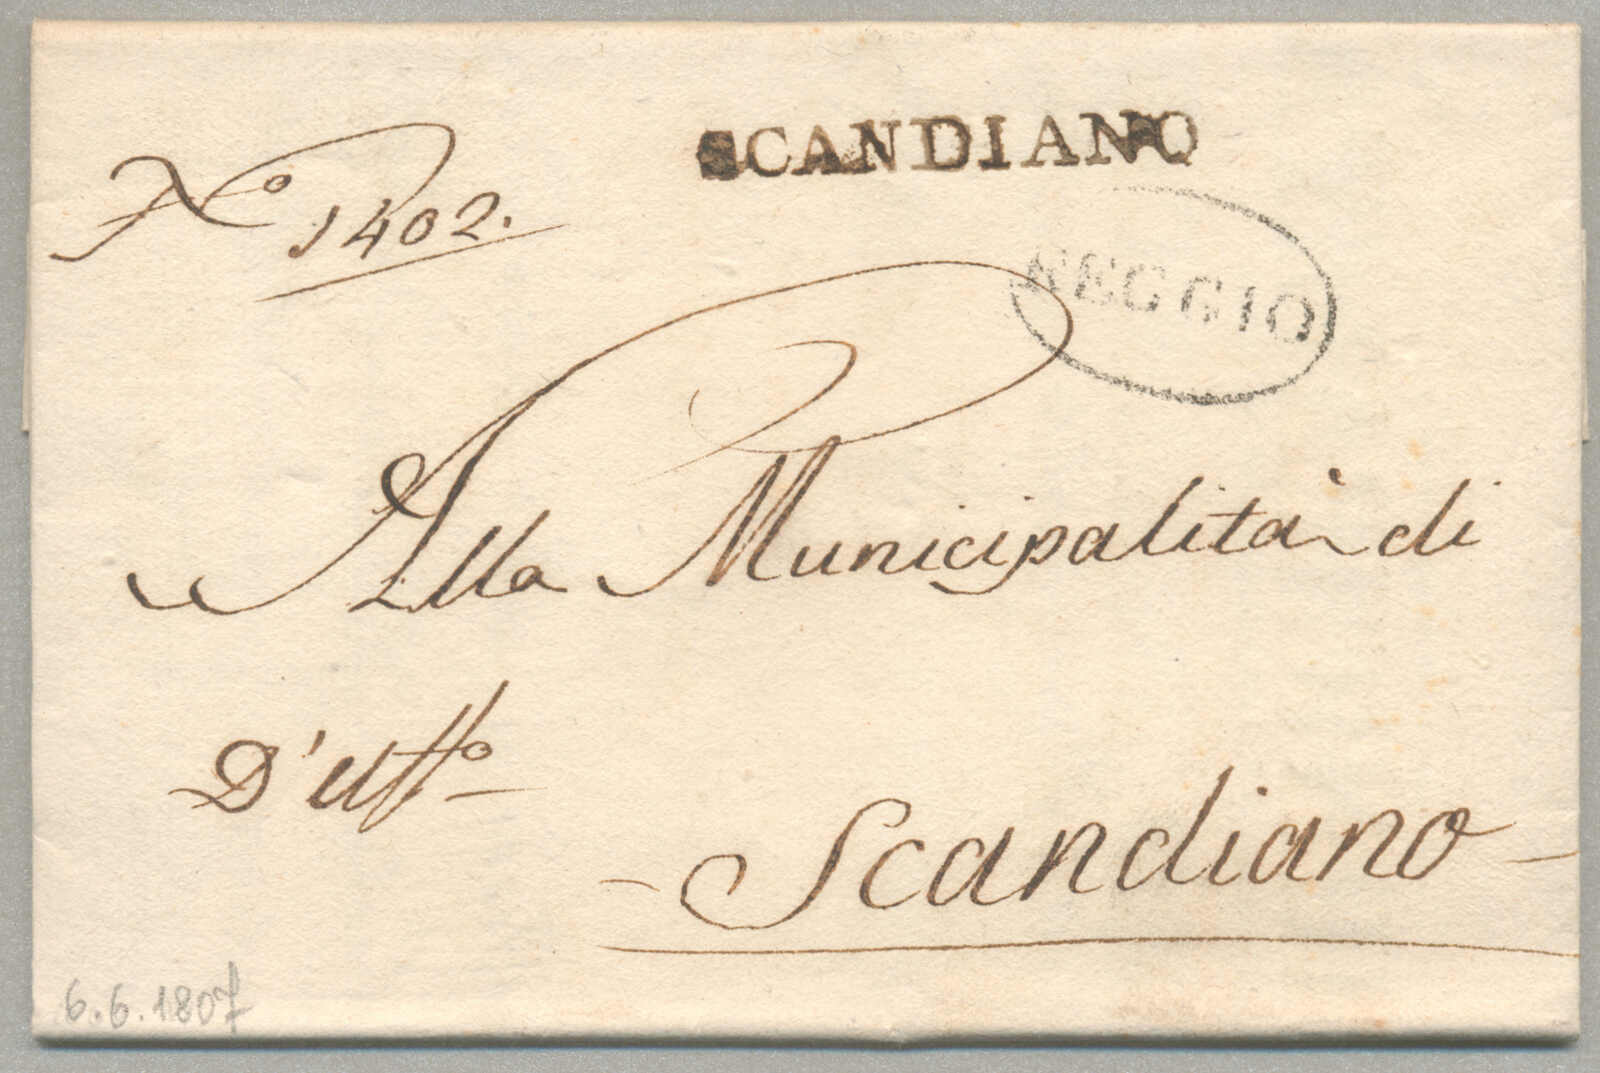 SCANDIANO
N.o 1402.
REGGIO
Alla Municipalità di
D'uffo
Scandiano
6.6.1807